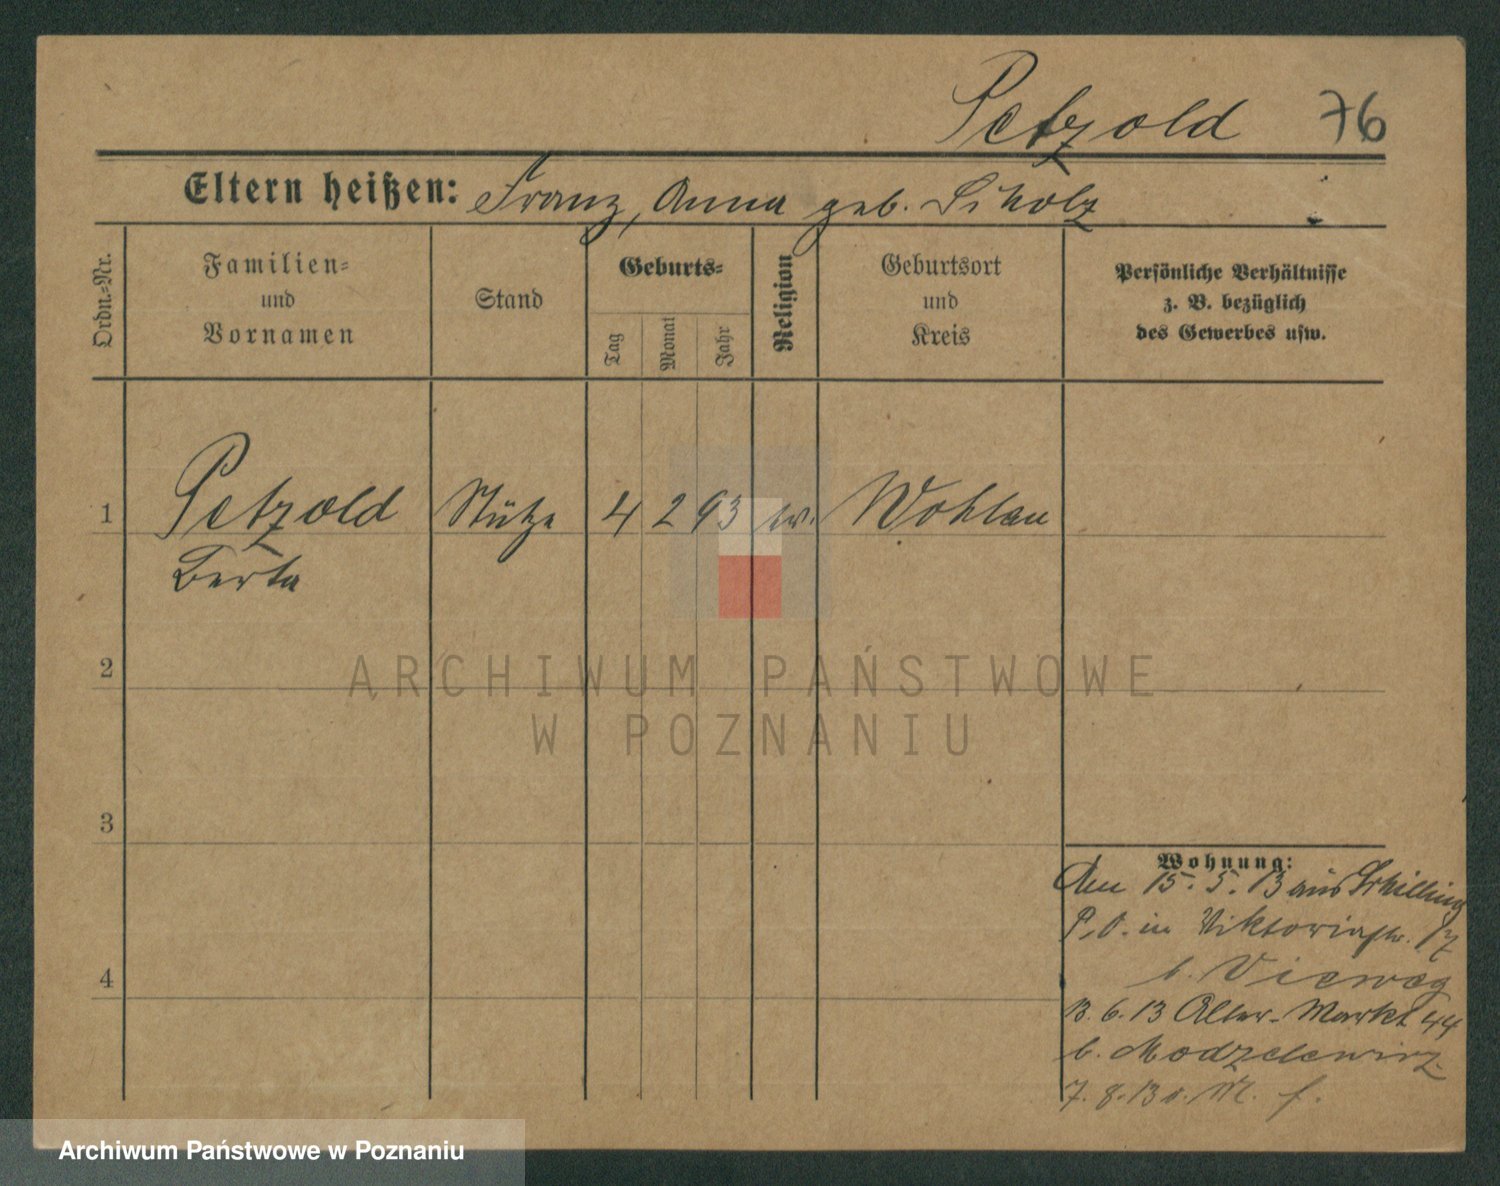 Petzold 76
Eltern heißen: Franz, Anna geb. Scholz
Ordn.=Nr.
Familien=
und
Vornamen
Stand
Geburts=
Tag
Monat
Jahr
Religion
Geburtsort
und
Kreis
Persönliche Verhältnisse
z. B. bezüglich
des Gewerbes usw.
1 Petzold Stütze 4 2 93 ev. Wohlau
Berta
2
3
4
Wohnung:
Am 15. 5. 13 aus Schilling
P. O. in Viktoriastr. 17
b. Vieweg
13. 6. 13 Alter-Markt 44
b. Modzelewicz
7. 8. 13
ARCHIWUM PAŃSTWOWE
W POZNANIU
Archiwum Państwowe w Poznaniu